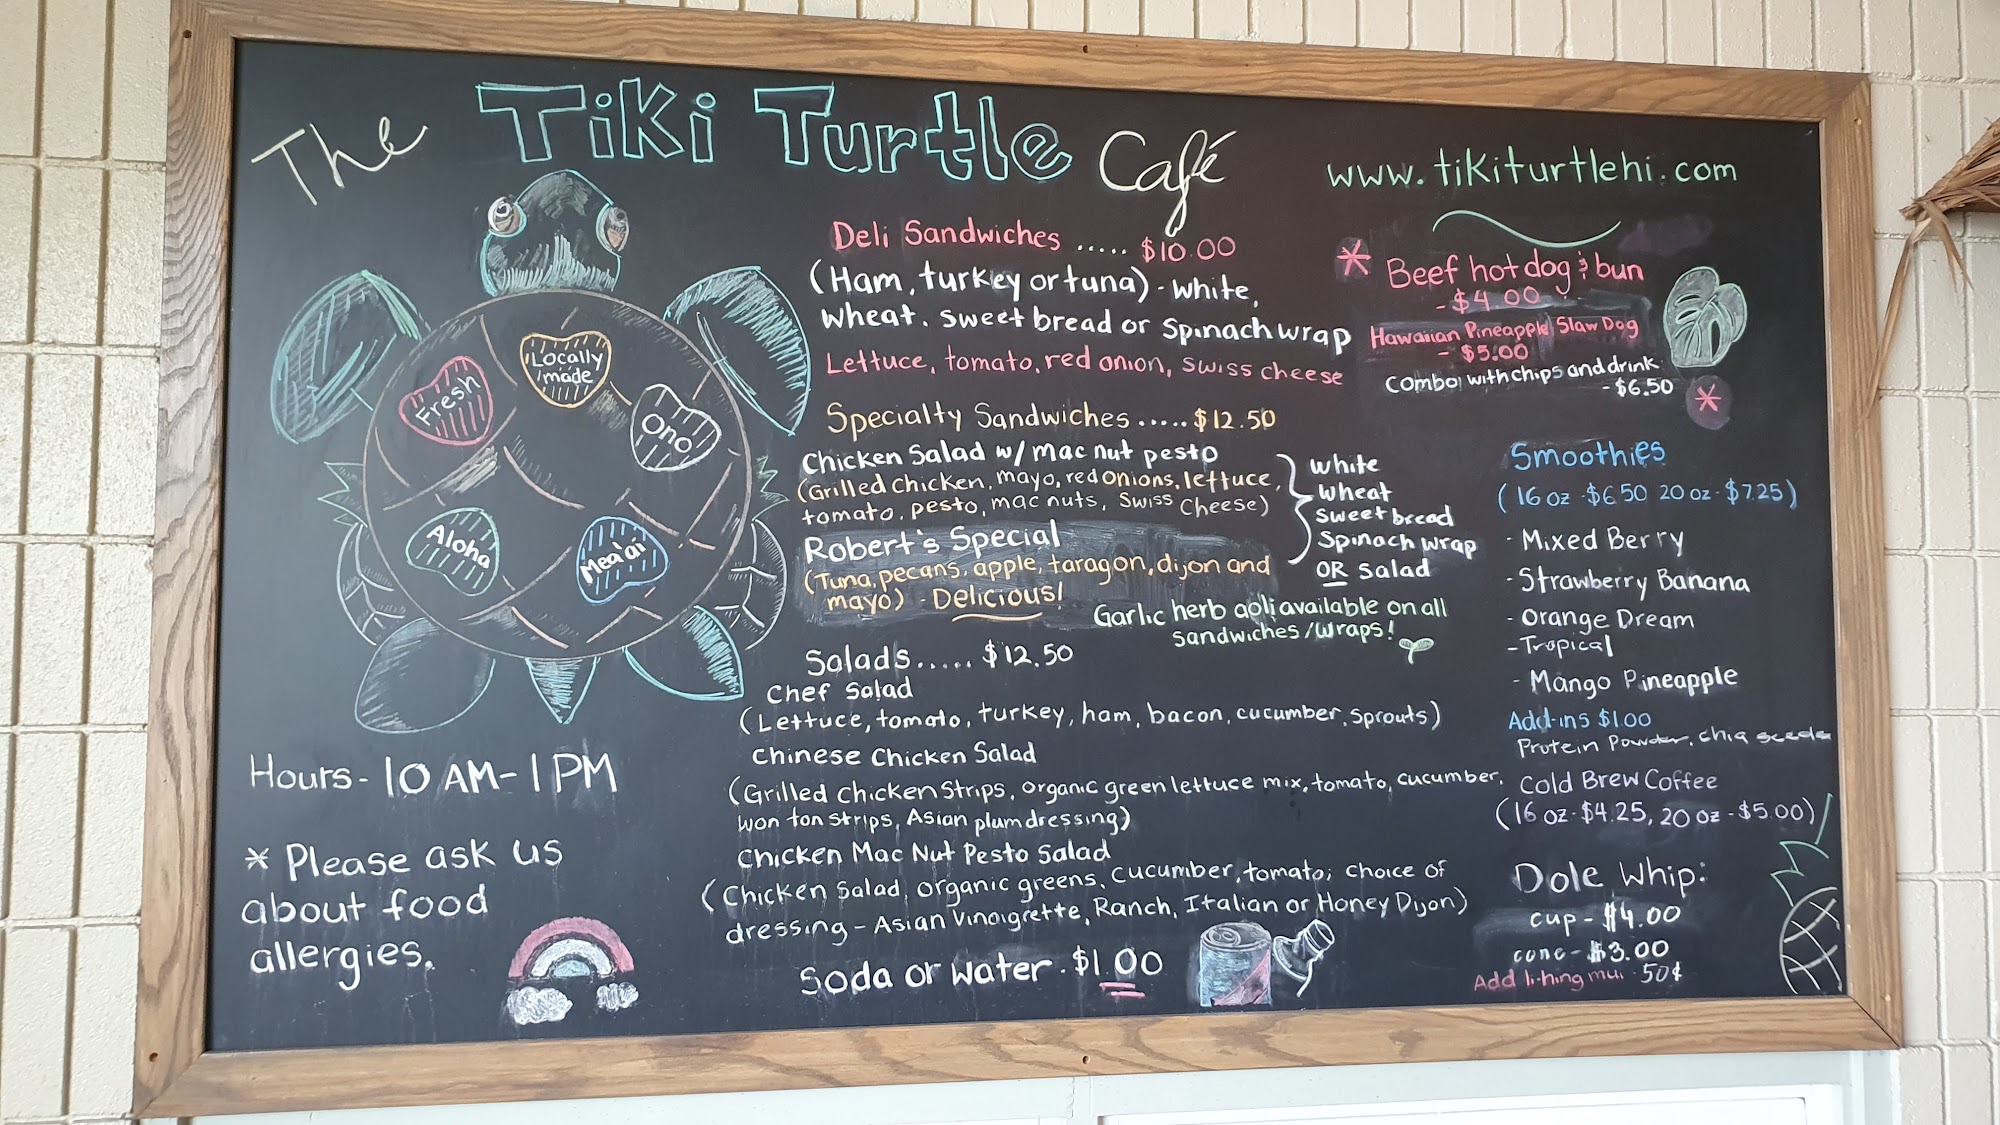 The Tiki Turtle Café
www.tikiturtlehi.com
Fresh
Locally
made
Ono
Aloha
Mea'ai
Hours - 10 AM - 1 PM
* Please ask us
about food
allergies.
Deli Sandwiches ..... $10.00
(Ham, turkey or tuna) - White,
wheat, sweet bread or Spinach wrap
Lettuce, tomato, red onion, swiss cheese
Specialty Sandwiches ..... $12.50
Chicken Salad w/ mac nut pesto
(Grilled chicken, mayo, red onions, lettuce,
tomato, pesto, mac nuts, Swiss Cheese)
Robert's Special
(Tuna, pecans, apple, taragon, dijon and
mayo) - Delicious!
white
wheat
sweet bread
Spinach wrap
OR salad
Garlic herb aoli available on all
sandwiches/wraps!
Salads ..... $12.50
Chef Salad
(Lettuce, tomato, turkey, ham, bacon, cucumber, sprouts)
Chinese Chicken Salad
(Grilled chicken Strips, organic green lettuce mix, tomato, cucumber,
won ton strips, Asian plum dressing)
Chicken Mac Nut Pesto Salad
(Chicken Salad, organic greens, cucumber, tomato; choice of
dressing - Asian Vinaigrette, Ranch, Italian or Honey Dijon)
Soda or Water . $1.00
* Beef hot dog & bun
- $4.00
Hawaiian Pineapple Slaw Dog
- $5.00
Combo with chips and drink
- $6.50 *
Smoothies
(16 oz - $6.50 20 oz - $7.25)
- Mixed Berry
- Strawberry Banana
- Orange Dream
- Tropical
- Mango Pineapple
Add-ins $1.00
Protein Powder, chia seeds
Cold Brew Coffee
(16 oz - $4.25, 20 oz - $5.00)
Dole Whip:
cup - $4.00
cone - $3.00
Add li-hing mui . 50¢